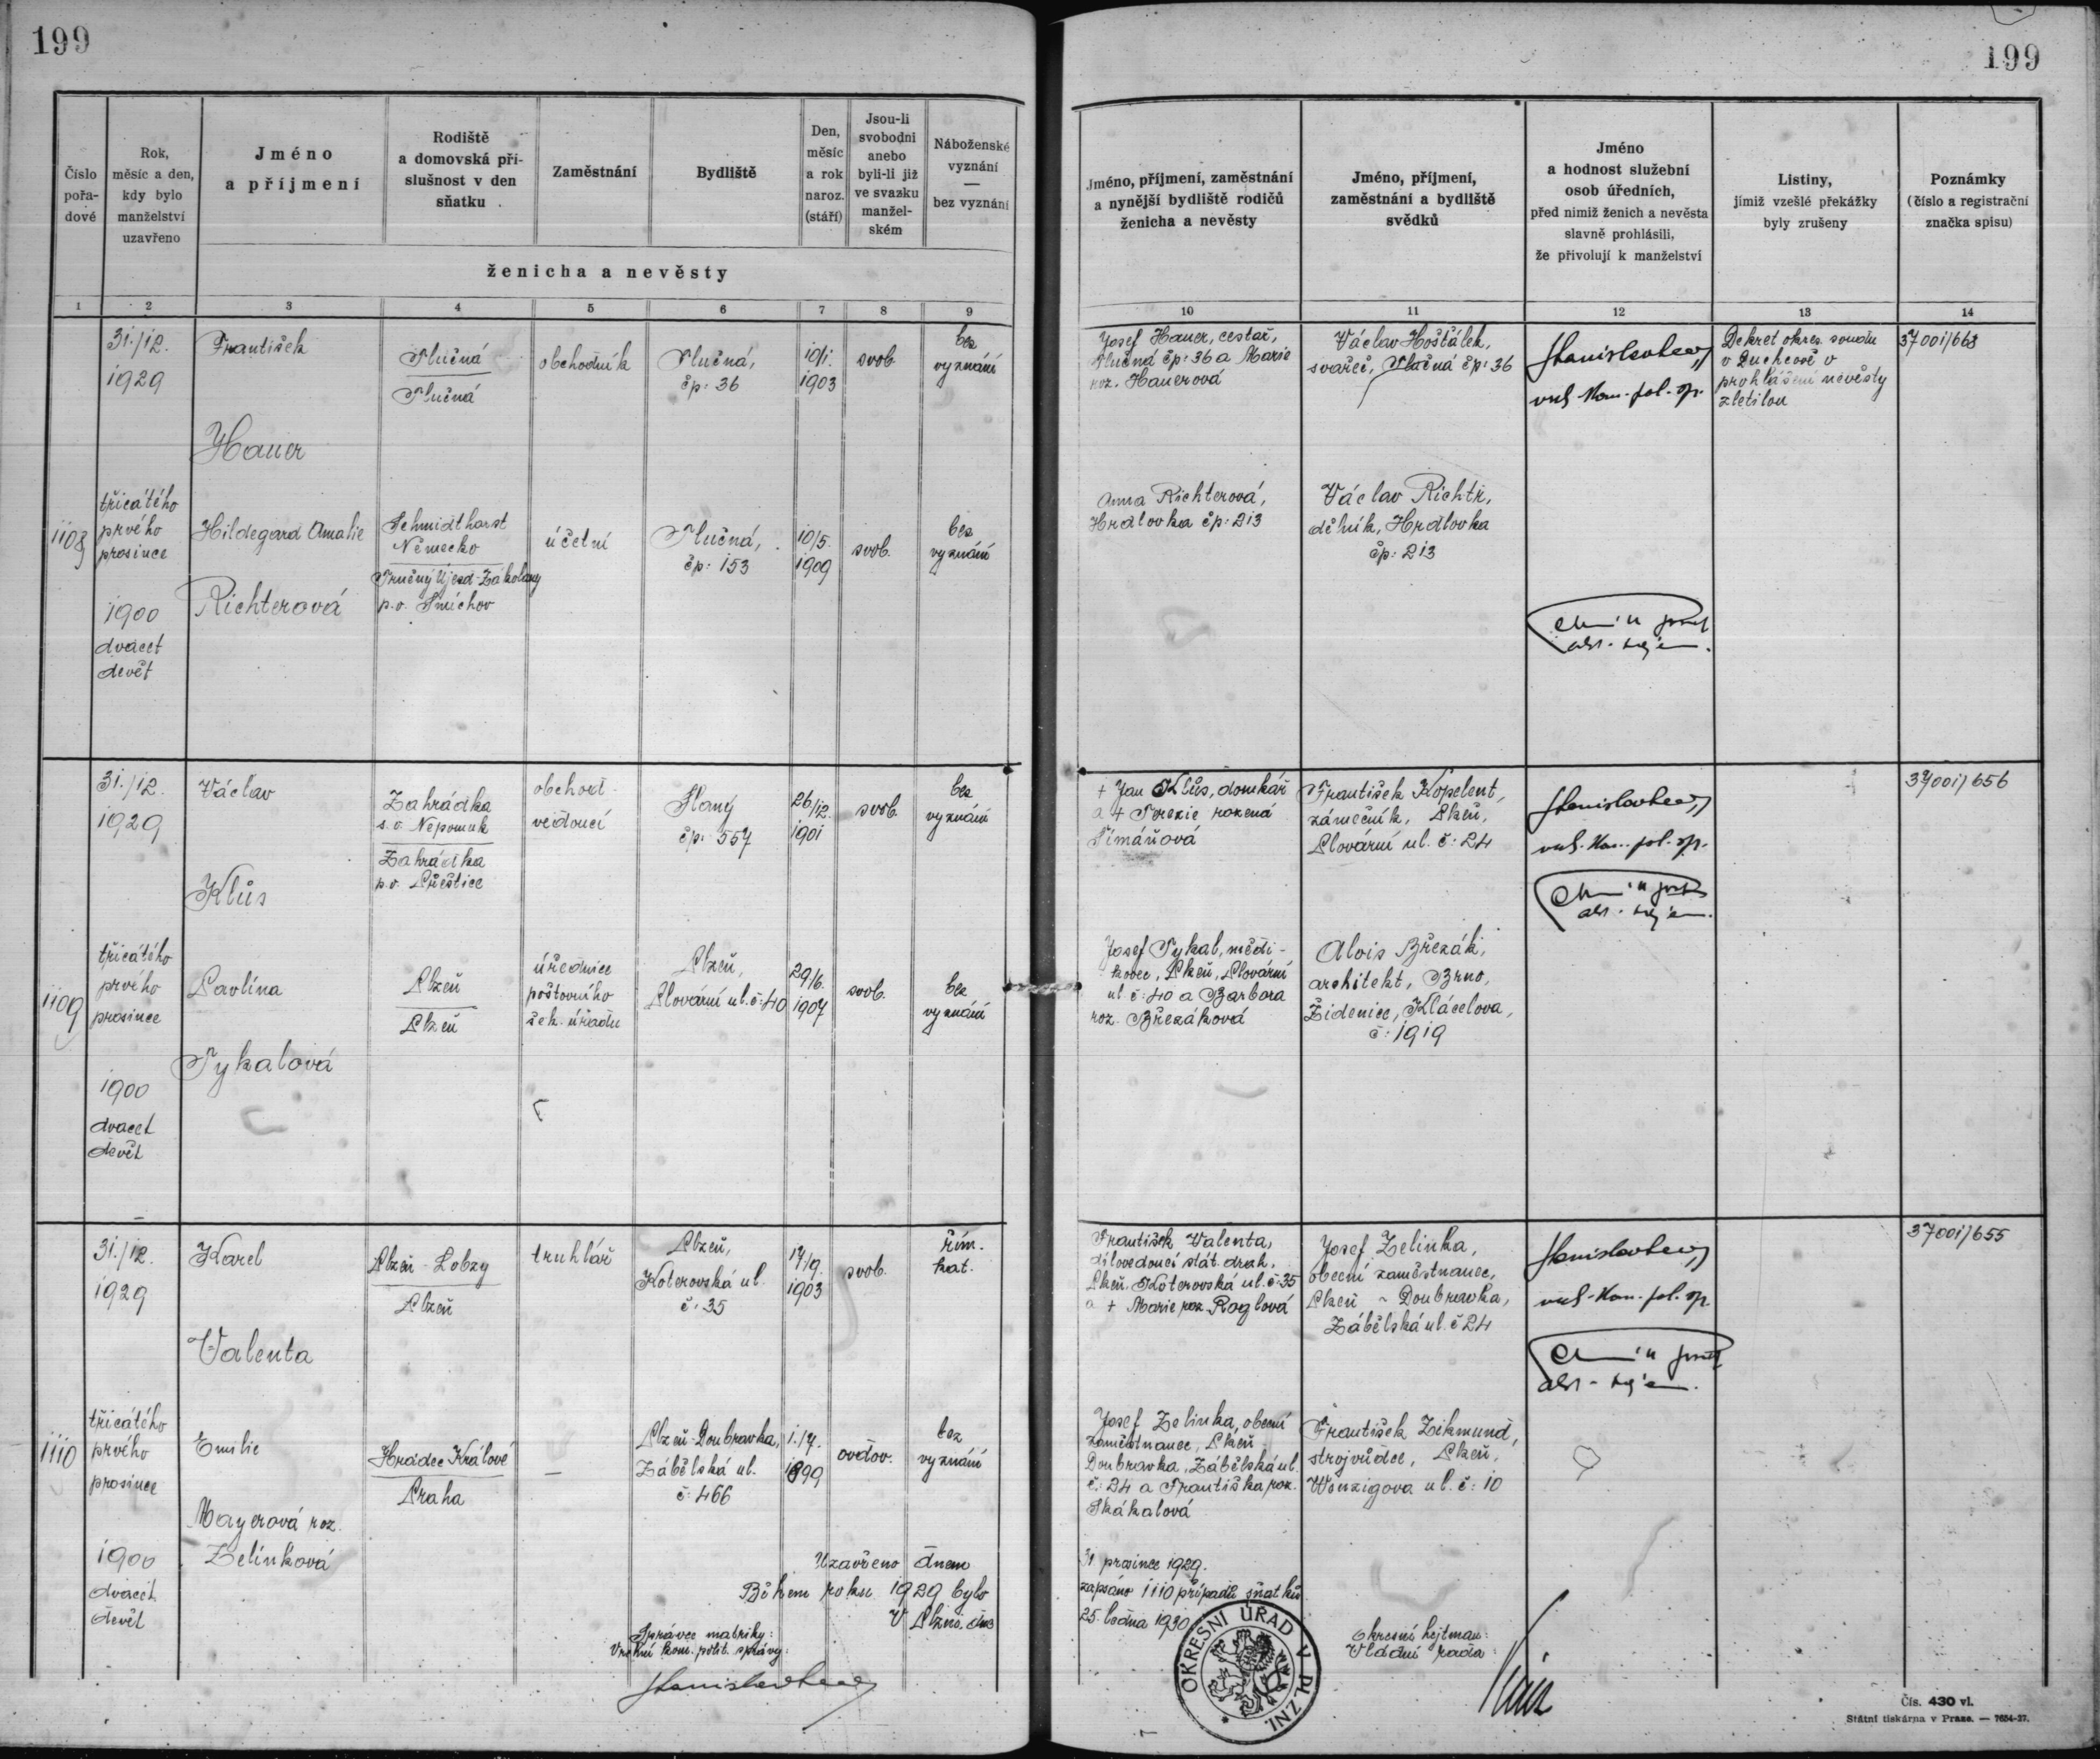 199
199
Číslo
pořa-
dové
Rok,
měsíc a den,
kdy bylo
manželství
uzavřeno
Jméno
a příjmení
Rodiště
a domovská pří-
slušnost v den
sňatku
Zaměstnání
Bydliště
Den,
měsíc
a rok
naroz.
(stáří)
Jsou-li
svobodni
anebo
byli-li již
ve svazku
manžel-
ském
Náboženské
vyznání
—
bez vyznání
ženicha a nevěsty
Jméno, příjmení, zaměstnání
a nynější bydliště rodičů
ženicha a nevěsty
Jméno, příjmení,
zaměstnání a bydliště
svědků
Jméno
a hodnost služební
osob úředních,
před nimiž ženich a nevěsta
slavně prohlásili,
že přivolují k manželství
Listiny,
jimiž vzešlé překážky
byly zrušeny
Poznámky
(číslo a registrační
značka spisu)
1 2 3 4 5 6 7 8 9
10 11 12 13 14
1108
31./12.
1929
třicátého
prvého
prosince
1900
dvacet
devět
František
Hauer
Hlučná
Hlučná
obchodník
čp: 36
10/1.
1903
svob.
bez
vyznání
Josef Hauer, cestař,
čp: 36 a Marie
roz. Hauerová
Václav Hošťálek,
svářeč, čp: 36
Dekret okres. soudu
v Duchcově o
prohlášení nevěsty
zletilou
37001/663
Hildegard Amalie
Richterová
Schmidthorst
Německo
Újezd-Zákolany
p.o. Smíchov
účetní
čp: 153
10/5.
1909
svob.
bez
vyznání
Anna Richterová,
Hrdlovka čp: 213
Václav Richtr,
dělník, Hrdlovka
čp: 213
1109
31./12.
1929
třicátého
prvého
prosince
1900
dvacet
devět
Václav
Klůs
Zahrádka
s.o. Nepomuk
Zahrádka
p.o. Přeštice
obchod.
vedoucí
Slaný
čp: 557
26/12.
1901
svob.
bez
vyznání
+ Jan Klůs, domkář
a + Terezie rozená
Šimáňová
František Kopelent,
zámečník, Plzeň,
Plovární ul. č: 24
37001/656
Pavlína
Tykalová
Plzeň
Plzeň
úřednice
poštovního
šek. úřadu
Plzeň,
Plovární ul. č: 40
29/6.
1907
svob.
bez
vyznání
Josef Tykal, mědi-
kovec, Plzeň, Plovární
ul. č: 40 a Barbora
roz. Březáková
Alois Březák,
architekt, Brno,
Židenice, Klácelova,
č: 1919
1110
31./12.
1929
třicátého
prvého
prosince
1900
dvacet
devět
Karel
Valenta
Plzeň - Lobzy
Plzeň
truhlář
Plzeň,
Koterovská ul.
č: 35
17/9.
1903
svob.
řím.
kat.
František Valenta,
dílovedoucí stát. drah,
Plzeň, Koterovská ul. č: 35
a + Marie roz. Roglová
Josef Zelinka,
obecní zaměstnanec,
Plzeň - Doubravka,
Zábělská ul. č 24
37001/655
Emilie
Mayerová roz.
Zelinková
Hradec Králové
Praha
—
Plzeň-Doubravka,
Zábělská ul.
č: 466
1./7.
1899
ovdov.
bez
vyznání
Josef Zelinka, obecní
zaměstnanec, Plzeň
Doubravka, Zábělská ul.
č: 24 a Františka roz.
Skákalová
František Zikmund,
strojvůdce, Plzeň,
Wenzigova ul. č: 10
Uzavřeno dnem 31 prosince 1929.
Během roku 1929 bylo zapsáno 1110 případů sňatků
V Plzni, dne 25. ledna 1930
Správce matriky:
Vrchní kom. polit. správy:
Okresní hejtman:
Vládní rada
OKRESNÍ ÚŘAD V PLZNI.
Čís. 430 vl.
Státní tiskárna v Praze. — 7654-27.